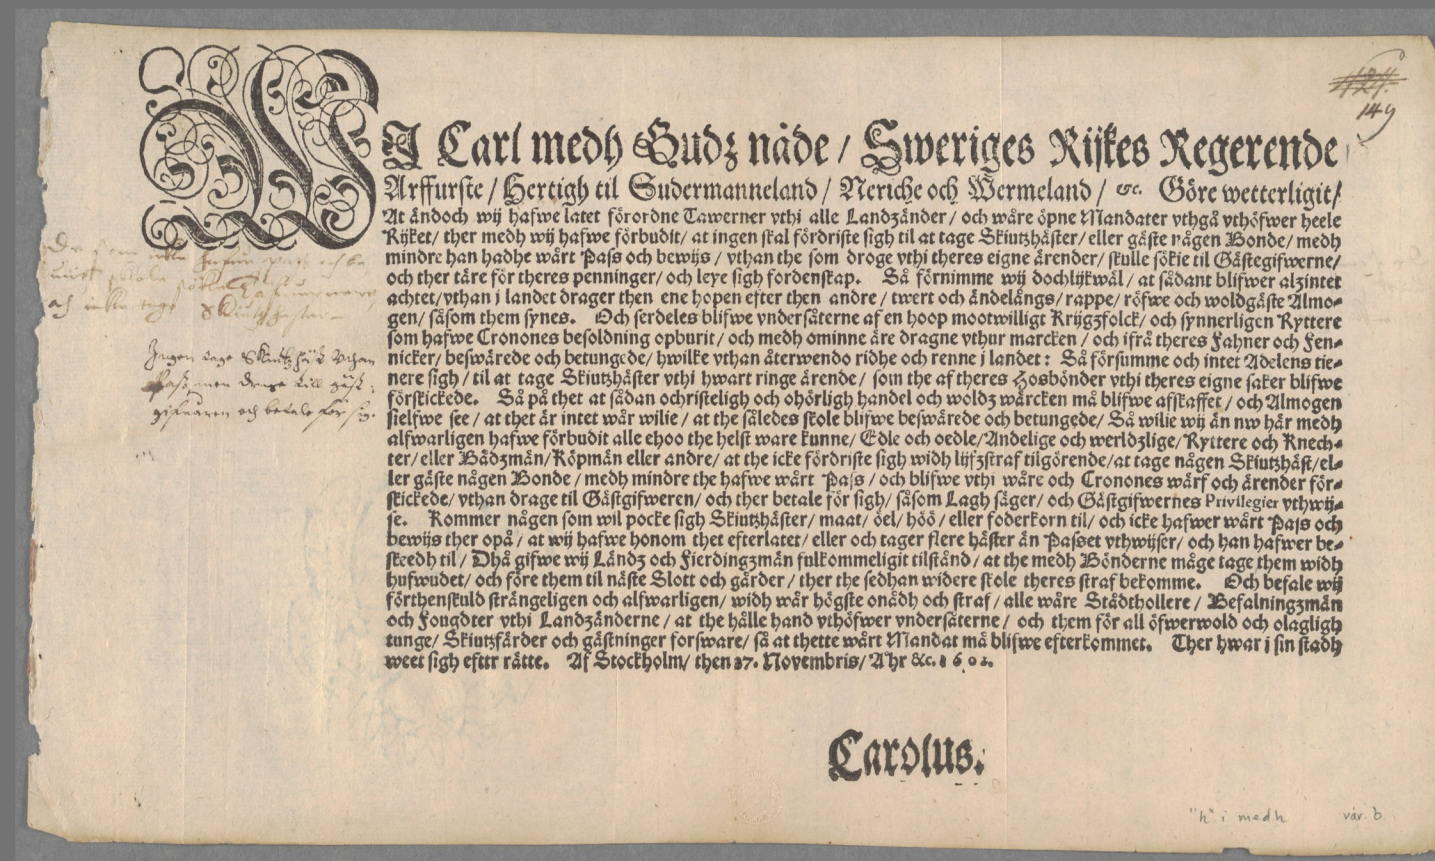 149
WJ Carl medh Gudz nåde / Sweriges Rijkes Regerende
Arffurste / Hertigh til Sudermanneland / Neriche och Wermeland / &c. Göre wetterligit /
At ändoch wij hafwe latet förordne Tawerner vthi alle Landzänder / och wåre öpne Mandater vthgå vthöfwer heele
Rijket / ther medh wij hafwe förbudit / at ingen skal fördriste sigh til at tage Skiutzhäster / eller gäste någen Bonde / medh
mindre han hadhe wårt Pass och bewijs / vthan the som droge vthi theres eigne ärender / skulle sökie til Gästegifwerne /
och ther täre för theres penninger / och leye sigh fordenskap. Så förnimme wij dochlijkwäl / at sådant blifwer alzintet
achtet / vthan i landet drager then ene hopen efter then andre / twert och ändelångs / rappe / röfwe och woldgäste Almo-
gen / såsom them synes. Och serdeles blifwe vndersåterne af en hoop mootwilligt Krijgzfolck / och synnerligen Ryttere
som hafwe Cronones besoldning opburit / och medh ominne äre dragne vthur marcken / och ifrå theres Fahner och Fen-
nicker / beswärede och betungede / hwilke vthan återwendo ridhe och renne i landet: Så försumme och intet Adelens tie-
nere sigh / til at tage Skiutzhäster vthi hwart ringe ärende / som the af theres Hosbönder vthi theres eigne saker blifwe
förskickede. Så på thet at sådan ochristeligh och ohörligh handel och woldz wärcken må blifwe afskaffet / och Almogen
sielfwe see / at thet är intet wår wilie / at the således skole blifwe beswärede och betungede / Så wilie wij än nw här medh
alfwarligen hafwe förbudit alle ehoo the helst ware kunne / Edle och oedle / Andelige och werldzlige / Ryttere och Knech-
ter / eller Bådzmän / Köpmän eller andre / at the icke fördriste sigh widh lijfzstraf tilgörende / at tage någen Skiutzhäst / el-
ler gäste någen Bonde / medh mindre the hafwe wårt Pass / och blifwe vthi wåre och Cronones wärf och ärender för-
skickede / vthan drage til Gästgifweren / och ther betale för sigh / såsom Lagh säger / och Gästgifwernes Privilegier vthwij-
se. Kommer någen som wil pocke sigh Skiutzhäster / maat / öel / höö / eller foderkorn til / och icke hafwer wårt Pass och
bewijs ther opå / at wij hafwe honom thet efterlatet / eller och tager flere häster än Passet vthwijser / och han hafwer be-
skeedh til / Dhå gifwe wij Ländz och Fierdingzmän fulkommeligit tilstånd / at the medh Bönderne måge tage them widh
hufwudet / och före them til näste Slott och gårder / ther the sedhan widere skole theres straf bekomme. Och befale wij
förthenskuld strängeligen och alfwarligen / widh wår högste onådh och straf / alle wåre Stådthollere / Befalningzmän
och Fougdter vthi Landzänderne / at the hålle hand vthöfwer vndersåterne / och them för all öfwerwold och olagligh
tunge / Skiutzfärder och gästninger forsware / så at thette wårt Mandat må blifwe efterkommet. Ther hwar i sin stadh
weet sigh efttr rätte. Af Stockholm / then 27. Novembris / Åhr &c. 1602.
Ingen tage Skiutzhäst vthan
Pass men drage till gäst-
gifwaren och betale för sig.
Carolus.
"h" i medh var. b